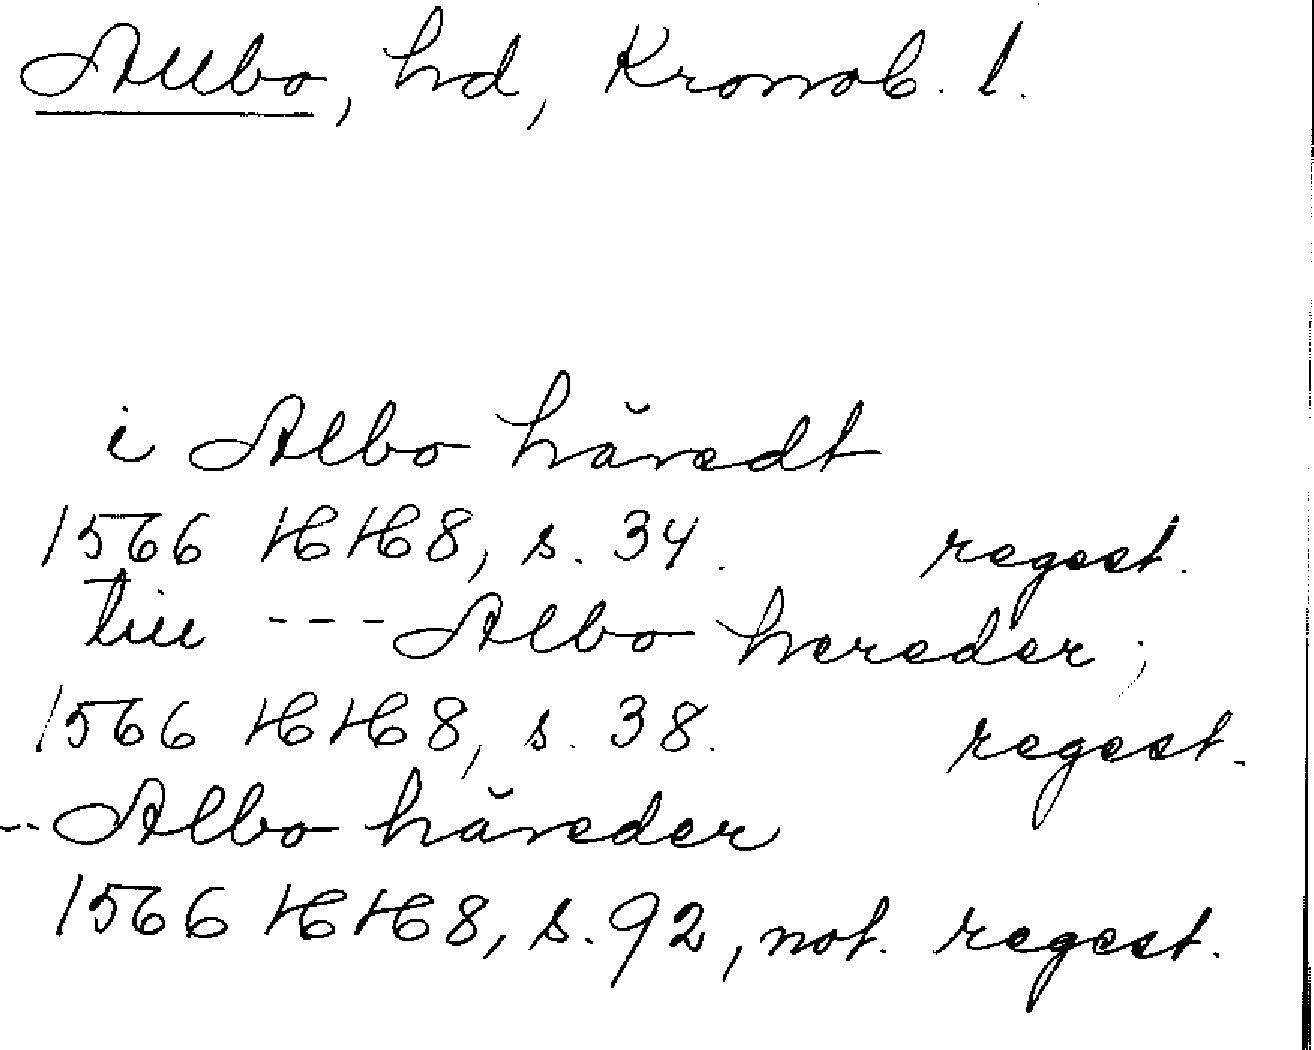 Allbo, hd, Kronob. l.
i Albo häredt
1566 HH 8, s. 34. regest.
till --- Albo hereder;
1566 HH 8, s. 38. regest.
-- Albo häreder
1566 HH 8, s. 92, not. regest.